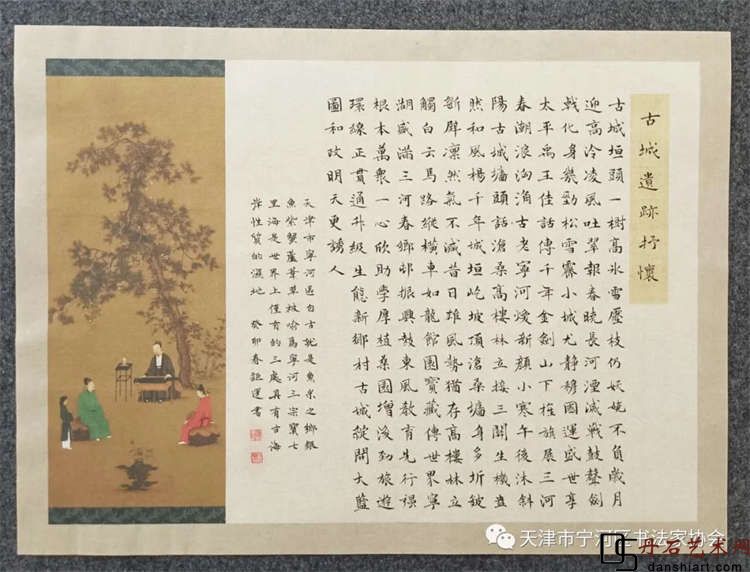 古城遺跡抒懷
古城垣頭一樹高冰雪壓枝仍妖嬈不負歲月
迎高冷凌風吐翠報春曉長河湮滅戰鼓聲劍
戟化身幾勁松雪霽小城尤靜穆國運盛世享
太平禹王佳話傳千年金劍山下旌旗展三河
春潮浪洶湧古老寧河煥新顏小寒午後沐斜
陽古城墻頭話滄桑高樓林立接三關生機盎
然和風楊千年城垣屹坡頂滄桑墻身多坼皴
新壁凜然氣不減昔日雄風勢猶存高樓林立
觸白云馬路縱橫車如龍館園寶藏傳世界寧
湖盛滿三河春鄉邨振興鼓東風教育先行强
根本萬衆一心欣助學厚植桑園增後勁旅遊
環線正貫通升級生態新鄉村古城開大藍
圖和政明天更誘人
天津市寧河區自古就是魚米之鄉銀
魚紫蟹蘆葦草被喻爲寧河三宗寶七
里海是世界上僅有的三處具有古海
岸性質的濕地 癸卯春運書
天津市宁河区书法家协会
丹石艺术网
danshiart.com